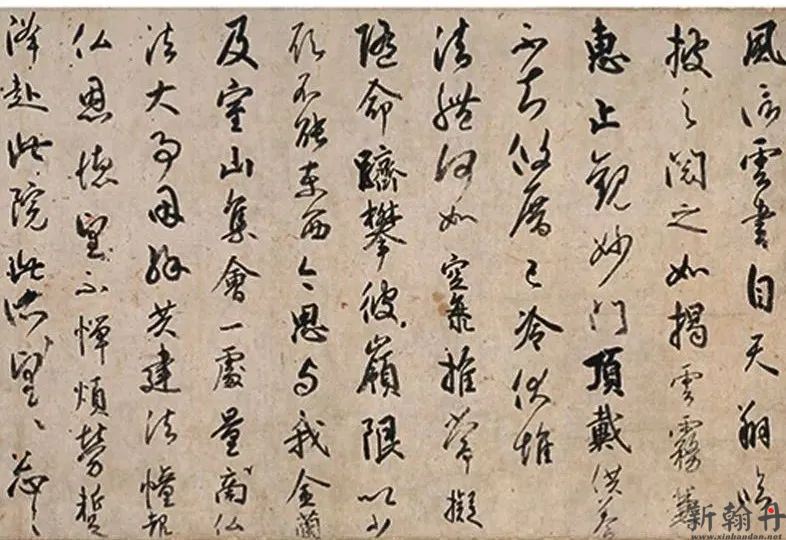 風信雲書自天翔臨
披之閱之如揭雲霧兼
惠止觀妙門頂戴供養
不知攸厝已冷伏惟
法體何如空海推常擬
隨命躋攀彼嶺限以少
願不能東西今思与我金蘭
及室山集會一處量商仏
法大事因緣共建法幢報
仏恩德望不憚煩勞蹔
降赴此院此所望々忩々
新翰丹
www.xinhandan.net